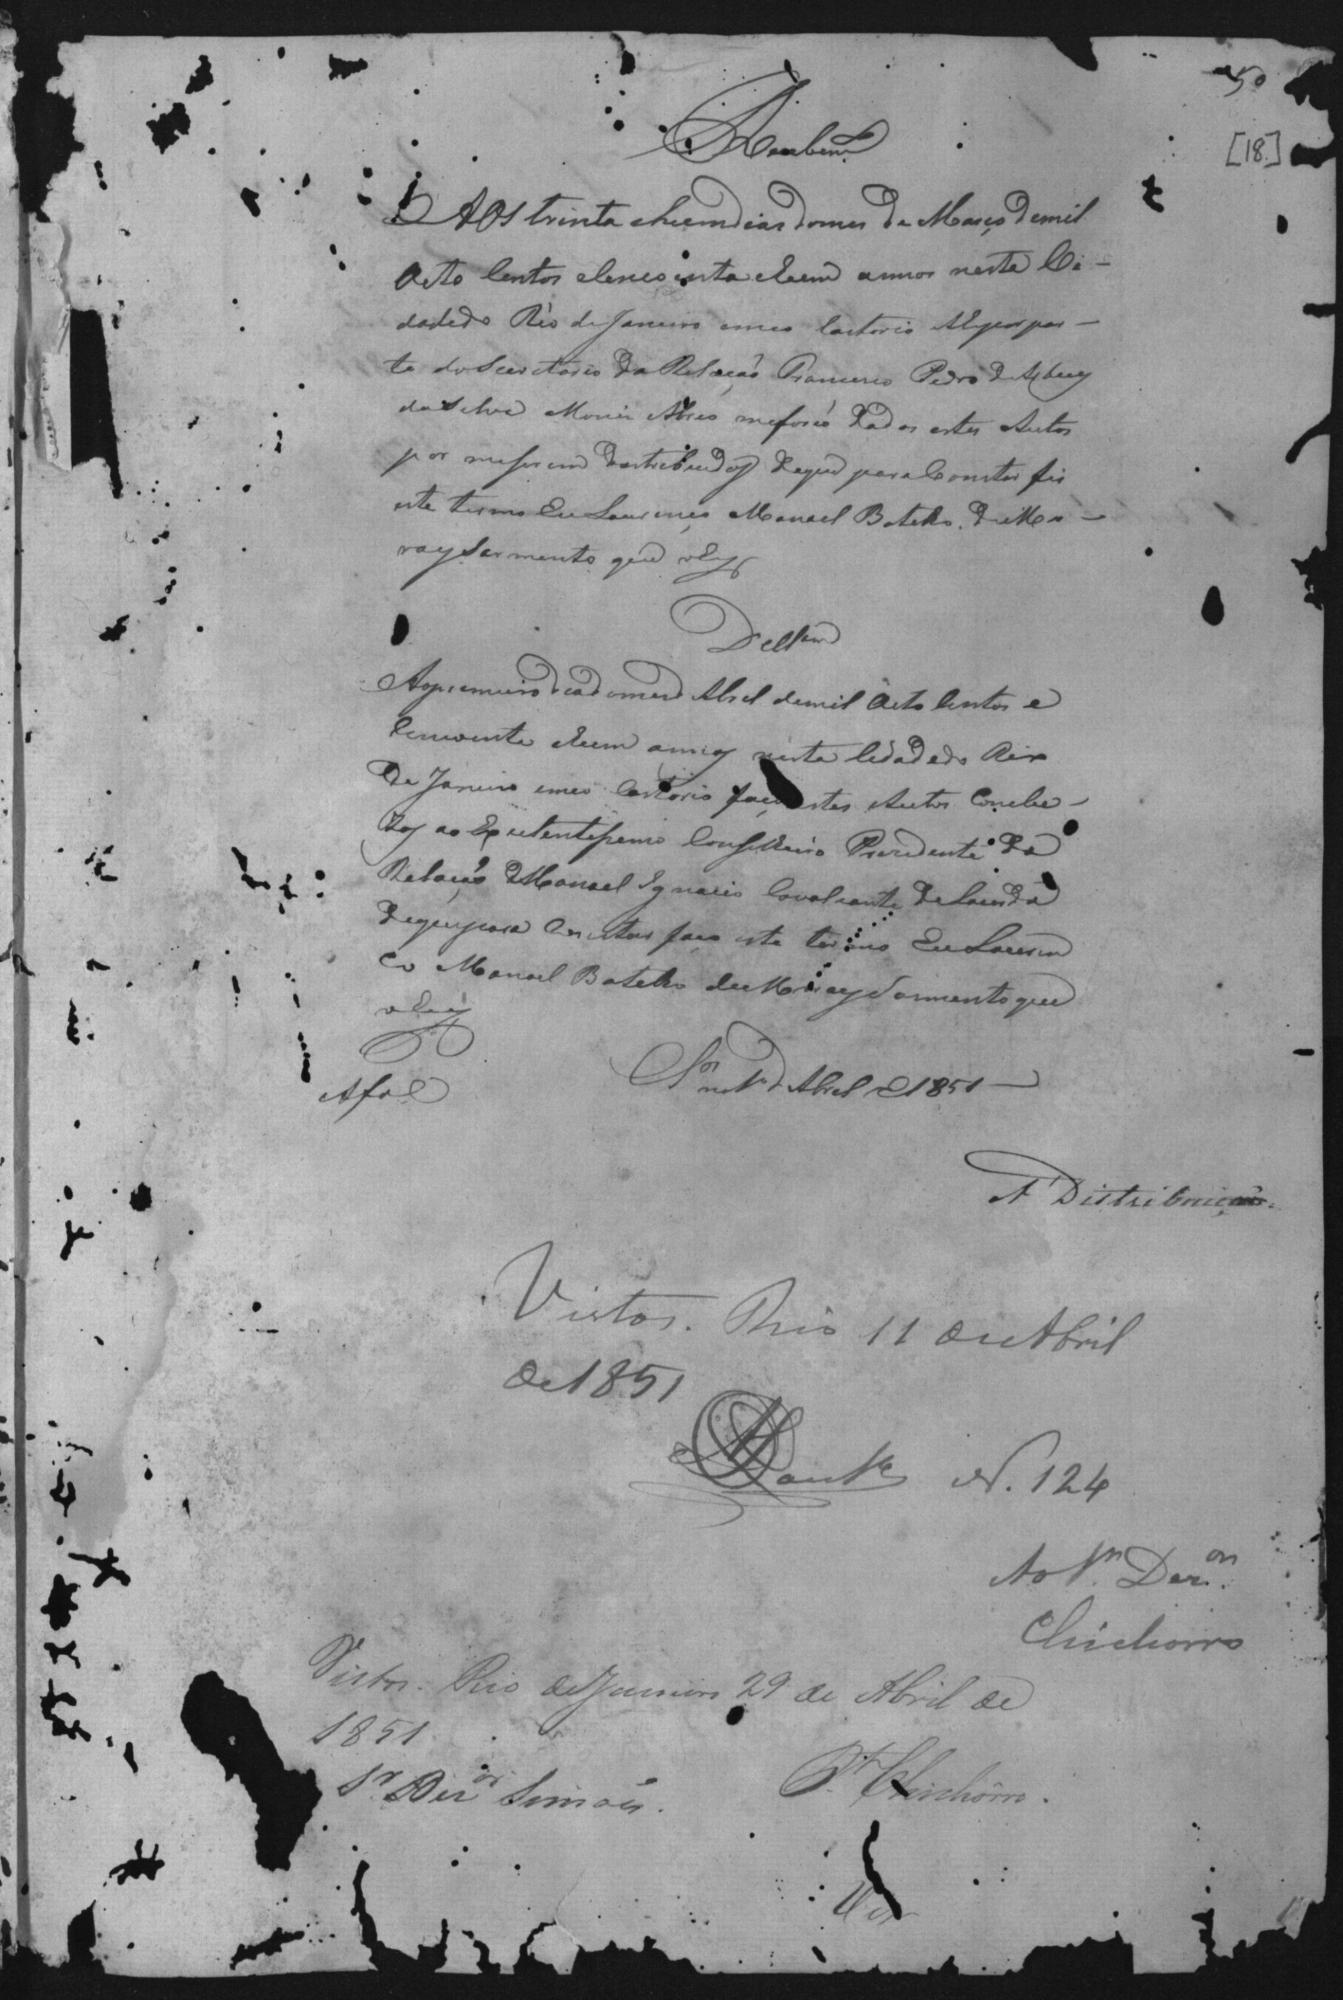 50
[18]
Recebim.to
Aos trinta e hum dias do mes de Março de mil
oito Centos e Cincoenta e hum annos nesta Ci-
dade do Rio de Janeiro em meo Cartorio ahi por par-
te do Secretario da Relação Francisco Pedro de Arbues
da Silva Moniz Abreo me forão dados estes Autos
por me serem destribuidos de que para Constar fis
este termo Eu Lourenço Manoel Botelho de Mo-
raes Sarmento que o Escr
Ao primeiro dia do mes de Abril de mil oito Centos e
Cincoenta e hum annos nesta Cidade do Rio
de Janeiro em meo Cartorio faço estes Autos Conclu-
sos ao Excelentissimo Conselheiro Prezidente da
Relação Manoel Ignacio Cavalcante de Lacerda
de que para Constar faço este termo Eu Louren
ço Manoel Botelho de Moraes Sarmento que
o Escr
de Abril de 1851
A' Distribuição.
Vistos. Rio 11 de Abril
de 1851
N. 124
Ao Sn. Dez.or
Chichorro
Vistos. Rio de Janeiro 29 de Abril de
1851.
Sr. Dez.or Simões.
Chichorro.